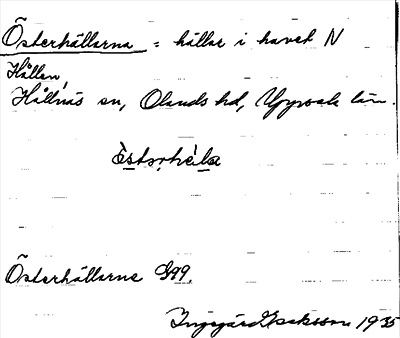 Österhällarna = hällar i havet N
Hållen,
Hållnäs sn, Olands hd, Uppsala län.
Österhällarne G99.
Ingegärd Isaksson 1935